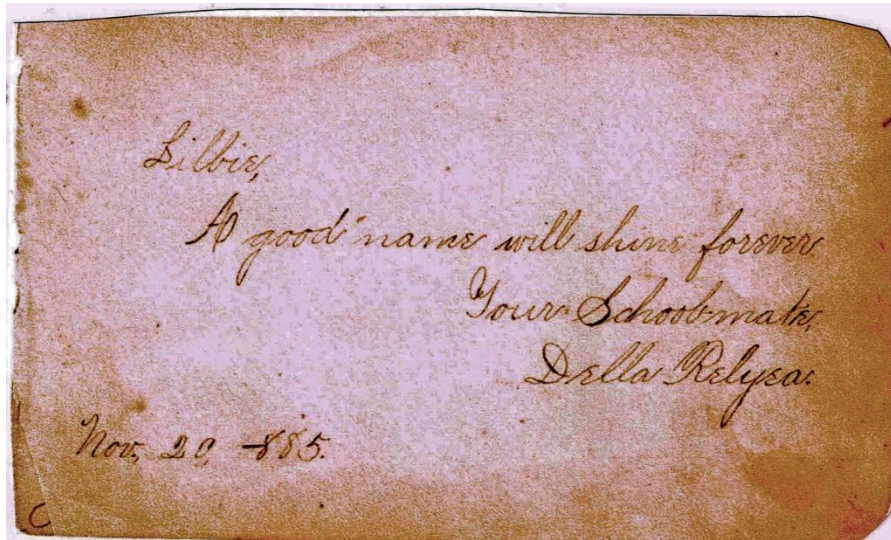 Libbie,
A good name will shine forever
Your School-mate,
Della Relyea.
Nov, 20, -885.